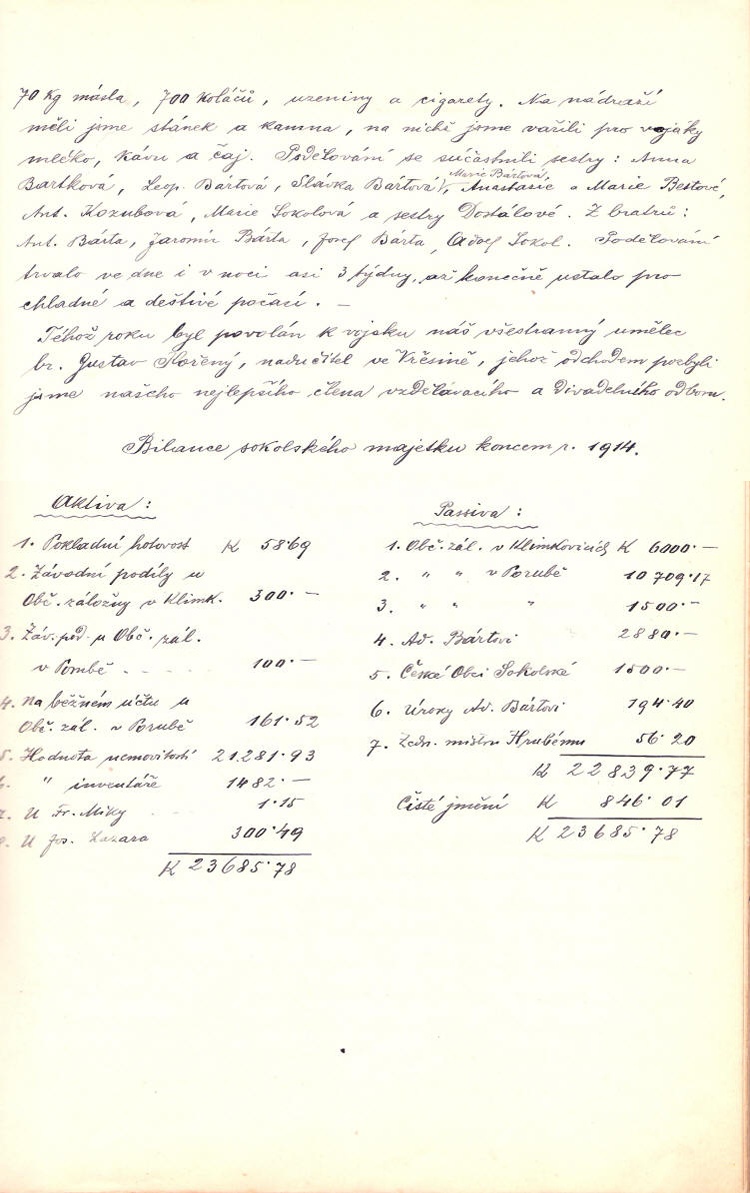 70 Kg másla, 700 Koláčů, uzeniny a cigarety. Na nádraží
měli jsme stánek a kamna, na nichž jsme vařili pro vojáky
mléko, Kávu a čaj. Podělování se súčastnili sestry: Anna
Marie Bártová,
Bartková, Leop. Bartová, Slávka Bártová, Anastasie a Marie Bestové,
Ant. Kozubová, Marie Sokolová a sestry Dostálové. Z bratrů:
Ant. Bárta, Jaromír Bárta, Josef Bárta, Adolf Sokol. Podělování
trvalo ve dne i v noci asi 3 týdny, až konečně ustalo pro
chladné a deštivé počasí. —
Téhož roku byl povolán k vojsku náš všestranný umělec
br. Gustav Hořený, nadučitel ve Vřesině, jehož odchodem pozbyli
jsme našeho nejlepšího člena vzdělávacího a divadelního odboru.
Bilance sokolského majetku koncem r. 1914.
Aktiva:
1. Pokladní hotovost K 58·69
2. Závodní podíly u
Obč. záložny v Klimk. 300·—
3. Záv. pod. u Obč. zál.
v Porubě 100·—
4. Na běžném účtu u
Obč. zál. v Porubě 161·52
5. Hodnota nemovitostí 21.281·93
6. " inventáře 1482·—
7. U Fr. Miky 1·15
8. U Jos. Lazara 300·49
K 23685·78
Passiva:
1. Obč. zál. v Klimkovicích K 6000·—
2. " " v Porubě 10709·17
3. " " " 1500·—
4. Ad. Bártovi 2880·—
5. České Obci Sokolské 1500·—
6. Úroky Ad. Bártovi 194·40
7. Zedn. mistru Hrubému 56·20
K 22839·77
Čisté jmění K 846·01
K 23685·78